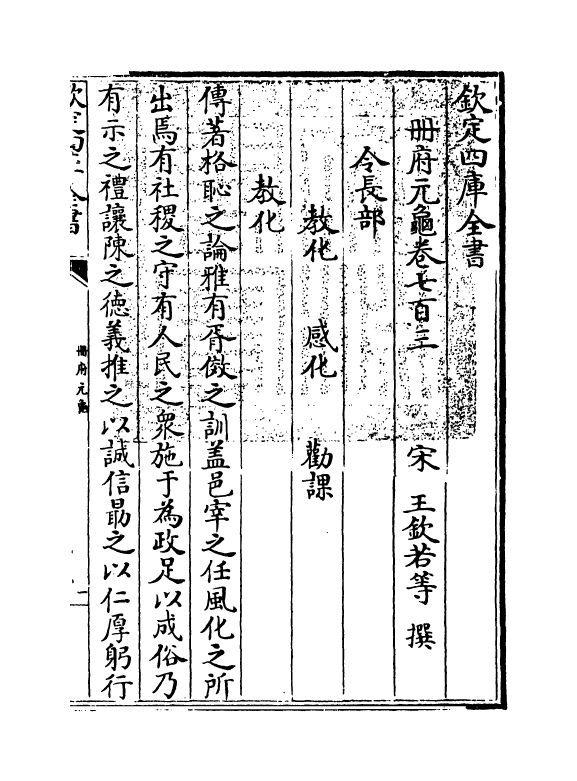 欽定四庫全書
冊府元龜卷七百三
宋 王欽若等 撰
令長部
教化 感化 勸課
教化
傳著格恥之論雅有胥傚之訓盖邑宰之任風化之所
出焉有社稷之守有人民之衆施于為政足以成俗乃
有示之禮讓陳之徳義推之以誠信勗之以仁厚躬行
冊府元龜